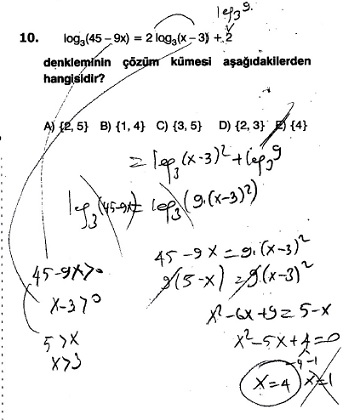 log₃9
10. log₃(45 – 9x) = 2 log₃(x – 3) + 2
denkleminin çözüm kümesi aşağıdakilerden
hangisidir?
A) {2, 5} B) {1, 4} C) {3, 5} D) {2, 3} E) {4}
= log₃(x-3)² + log₃9
log₃(45-9x) = log₃(9.(x-3)²)
45-9x>0
x-3>0
5>x
x>3
45-9x = 9.(x-3)²
9(5-x) = 9.(x-3)²
x²-6x+9 = 5-x
x²-5x+4=0
-4 -1
x=4 x=1